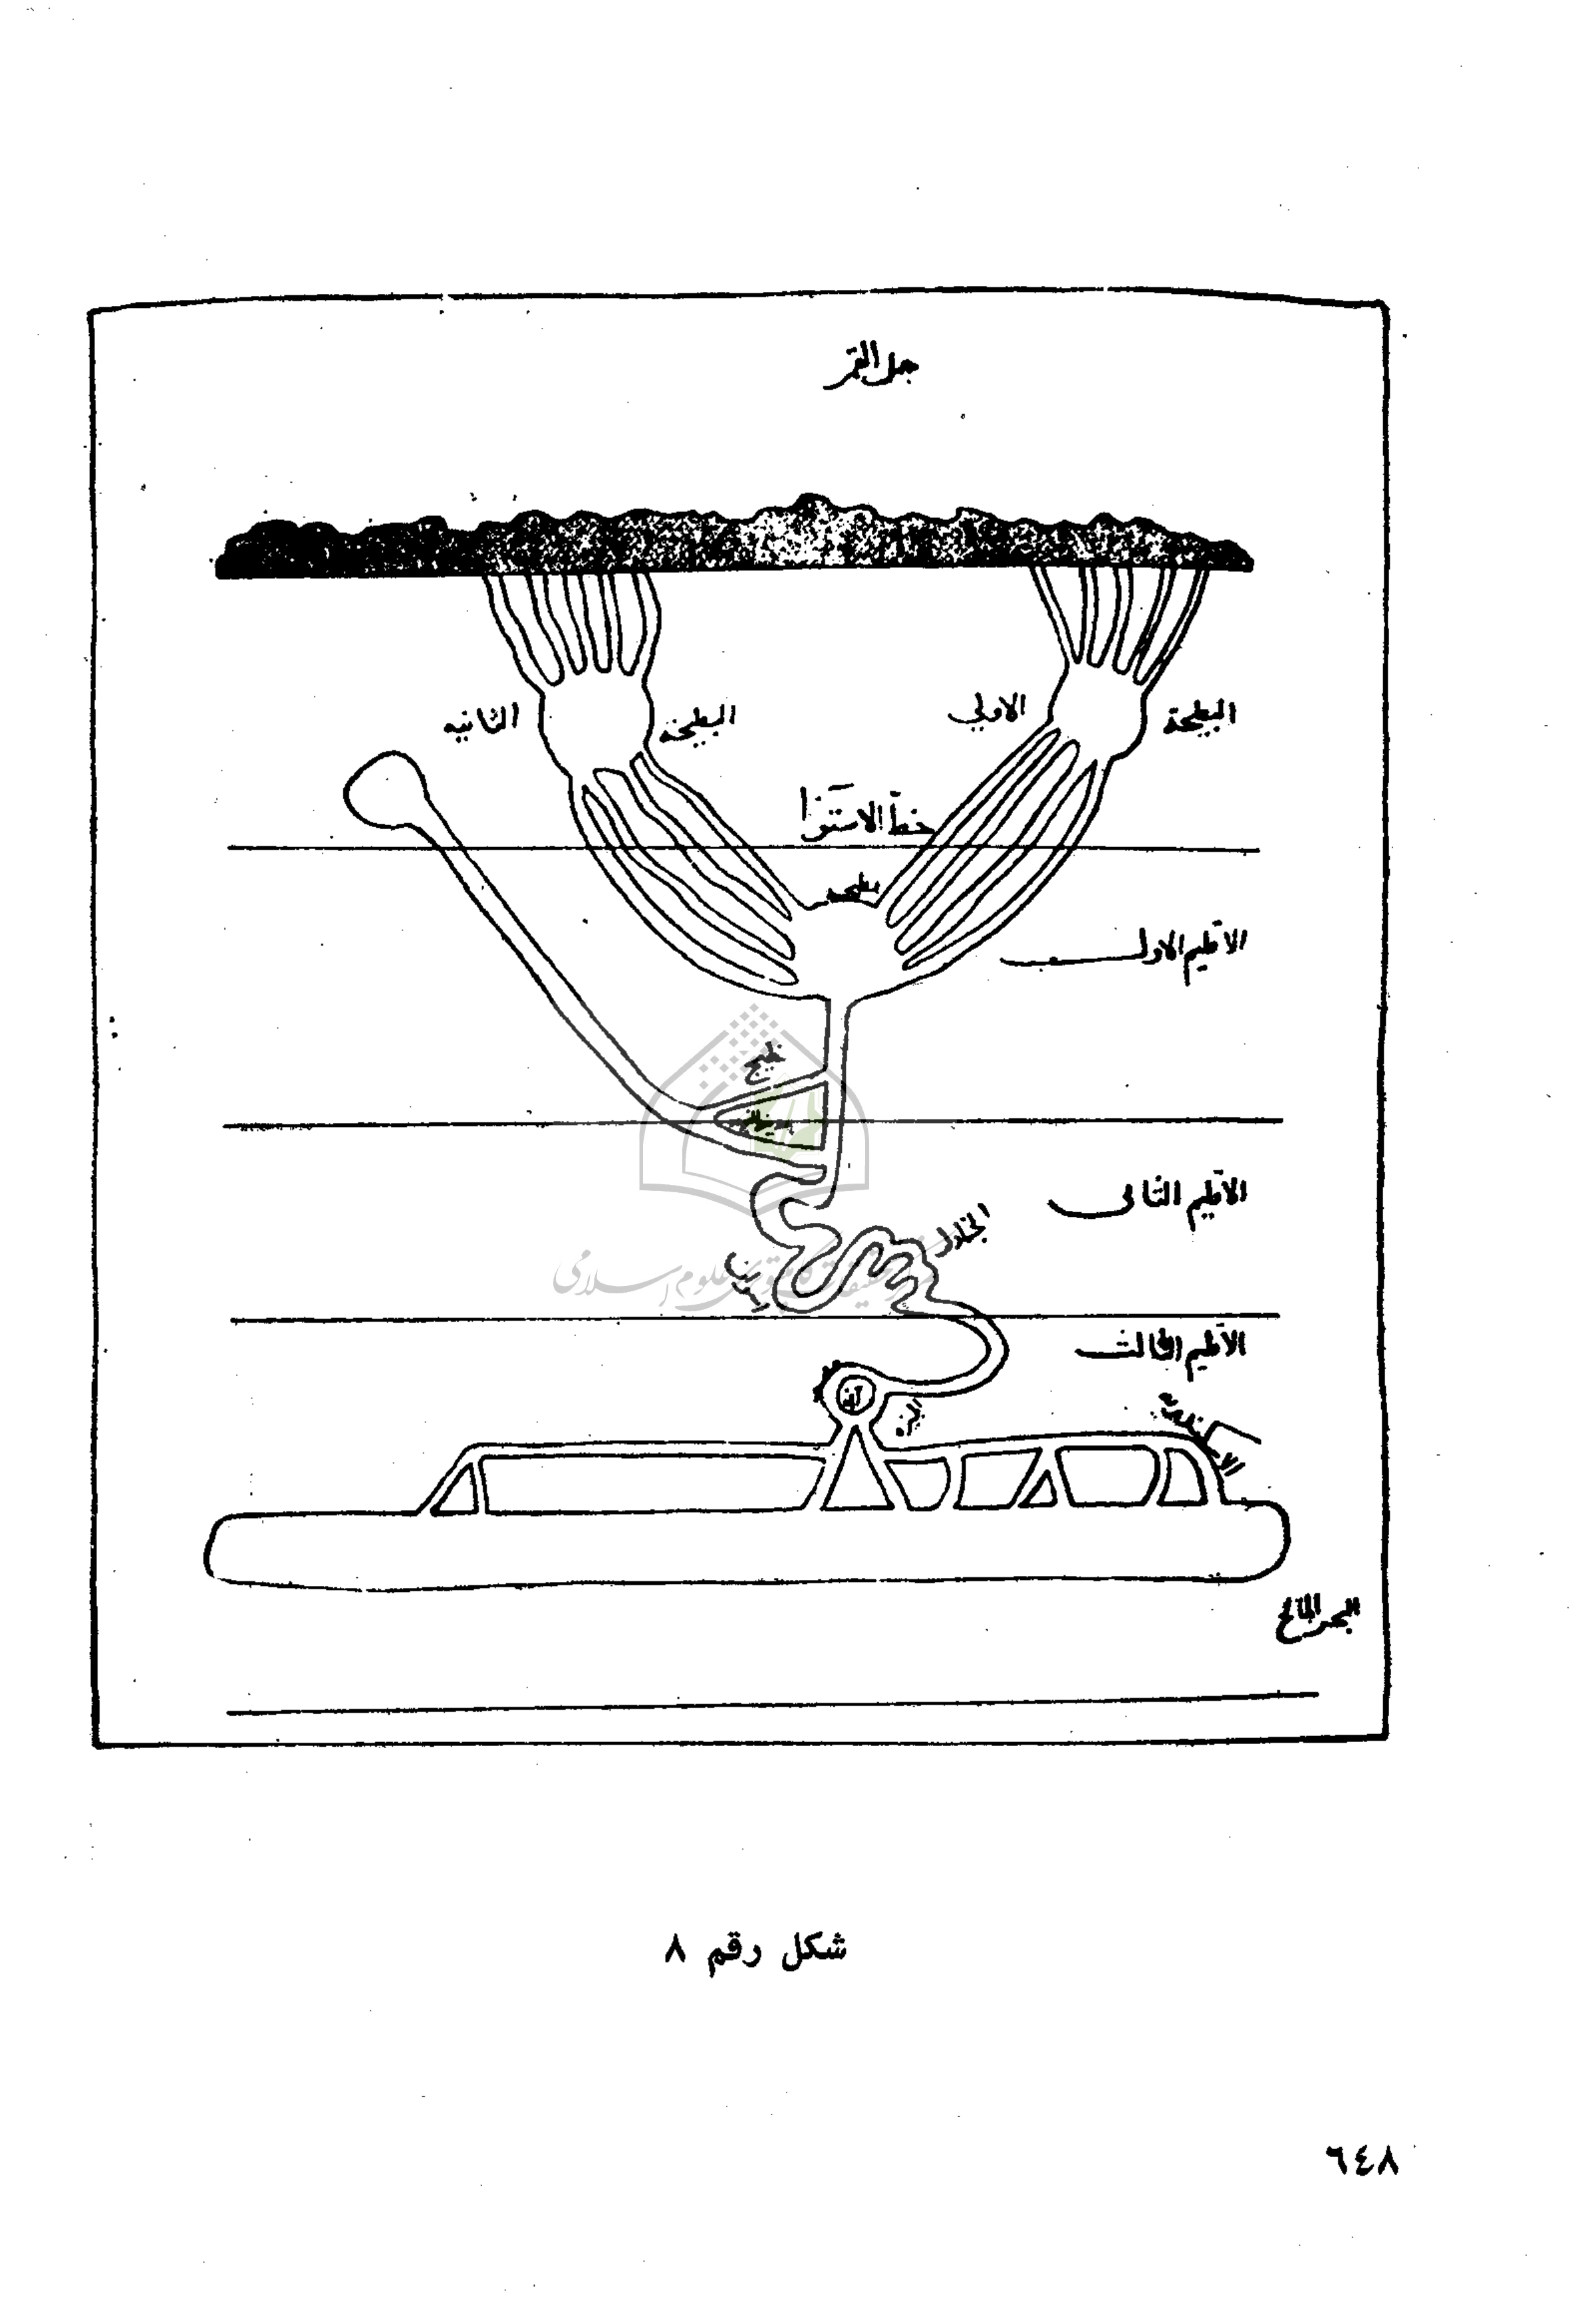 جبل القمر
البطيحة الاولي
البطيحة الثانيه
خط الاستوا
بطيحه
الاقليم الاول
خليج
الاقليم الثانى
الجنادل
الاقليم الثالث
البحر المالح
شكل رقم ٨
٦٤٨